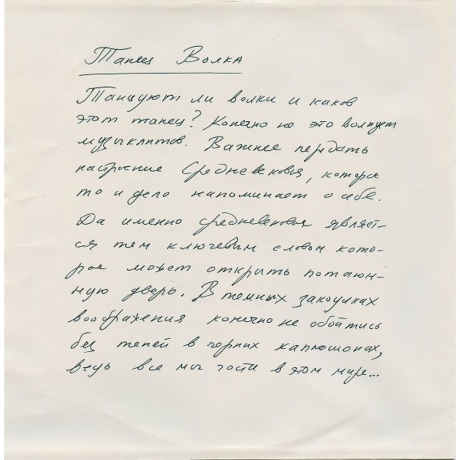 Танец Волка
Танцуют ли волки и каков
этот танец? Конечно не это волнует
музыкантов. Важнее передать
настроение Средневековья, которое
то и дело напоминает о себе.
Да именно средневековье являет-
ся тем ключевым словом кото-
рое может открыть потаён-
ную дверь. В темных закоулках
воображения конечно не обойтись
без теней в черных капюшонах,
ведь все мы гости в этом мире...